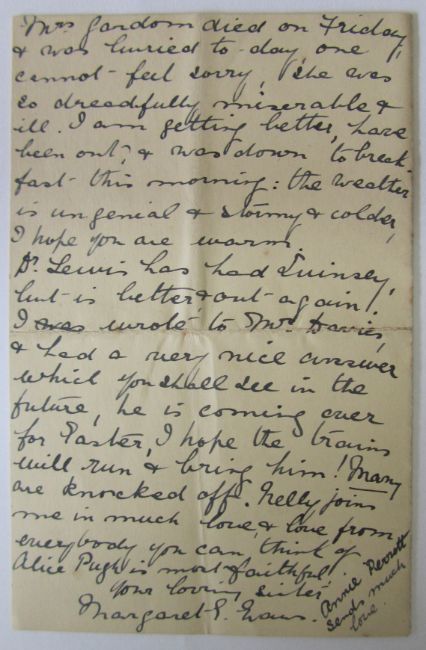 Mrs Gardom died on Friday,
& was buried to-day, one
cannot feel sorry, she was
so dreadfully miserable &
ill. I am getting better, have
been out, & was down to break-
fast this morning: the weather
is ungenial & stormy & colder,
I hope you are warm.
Dr. Lewis has had Quinsey,
but is better & out again.
I was wrote to Mr. Davies,
& had a very nice answer
which you shall see in the
future, he is coming over
for Easter, I hope the trains
will run & bring him! Many
are knocked off. Nelly joins
me in much love, & love from
everybody you can think of
Alice Pugh is most faithful.
Your loving sister
Margaret E. Evans.
Annie Perrott
sends much
love.